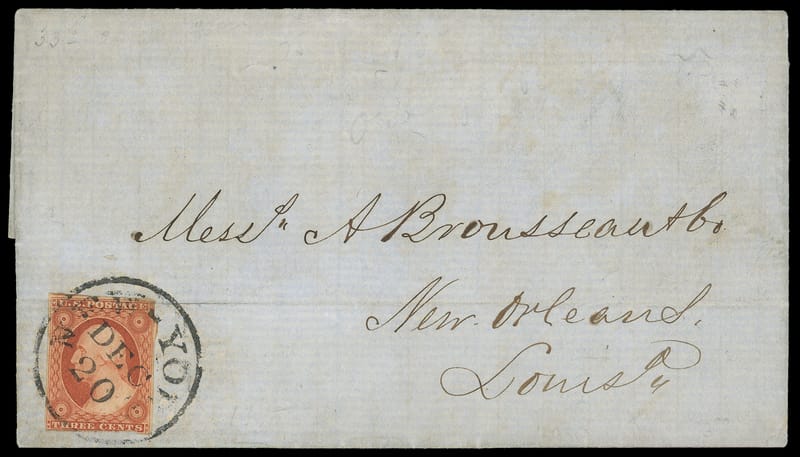 Messrs A Brousseau & Co.
New Orleans.
Louisa
U.S. POSTAGE
NEW YOR
DEC
20
THREE CENTS